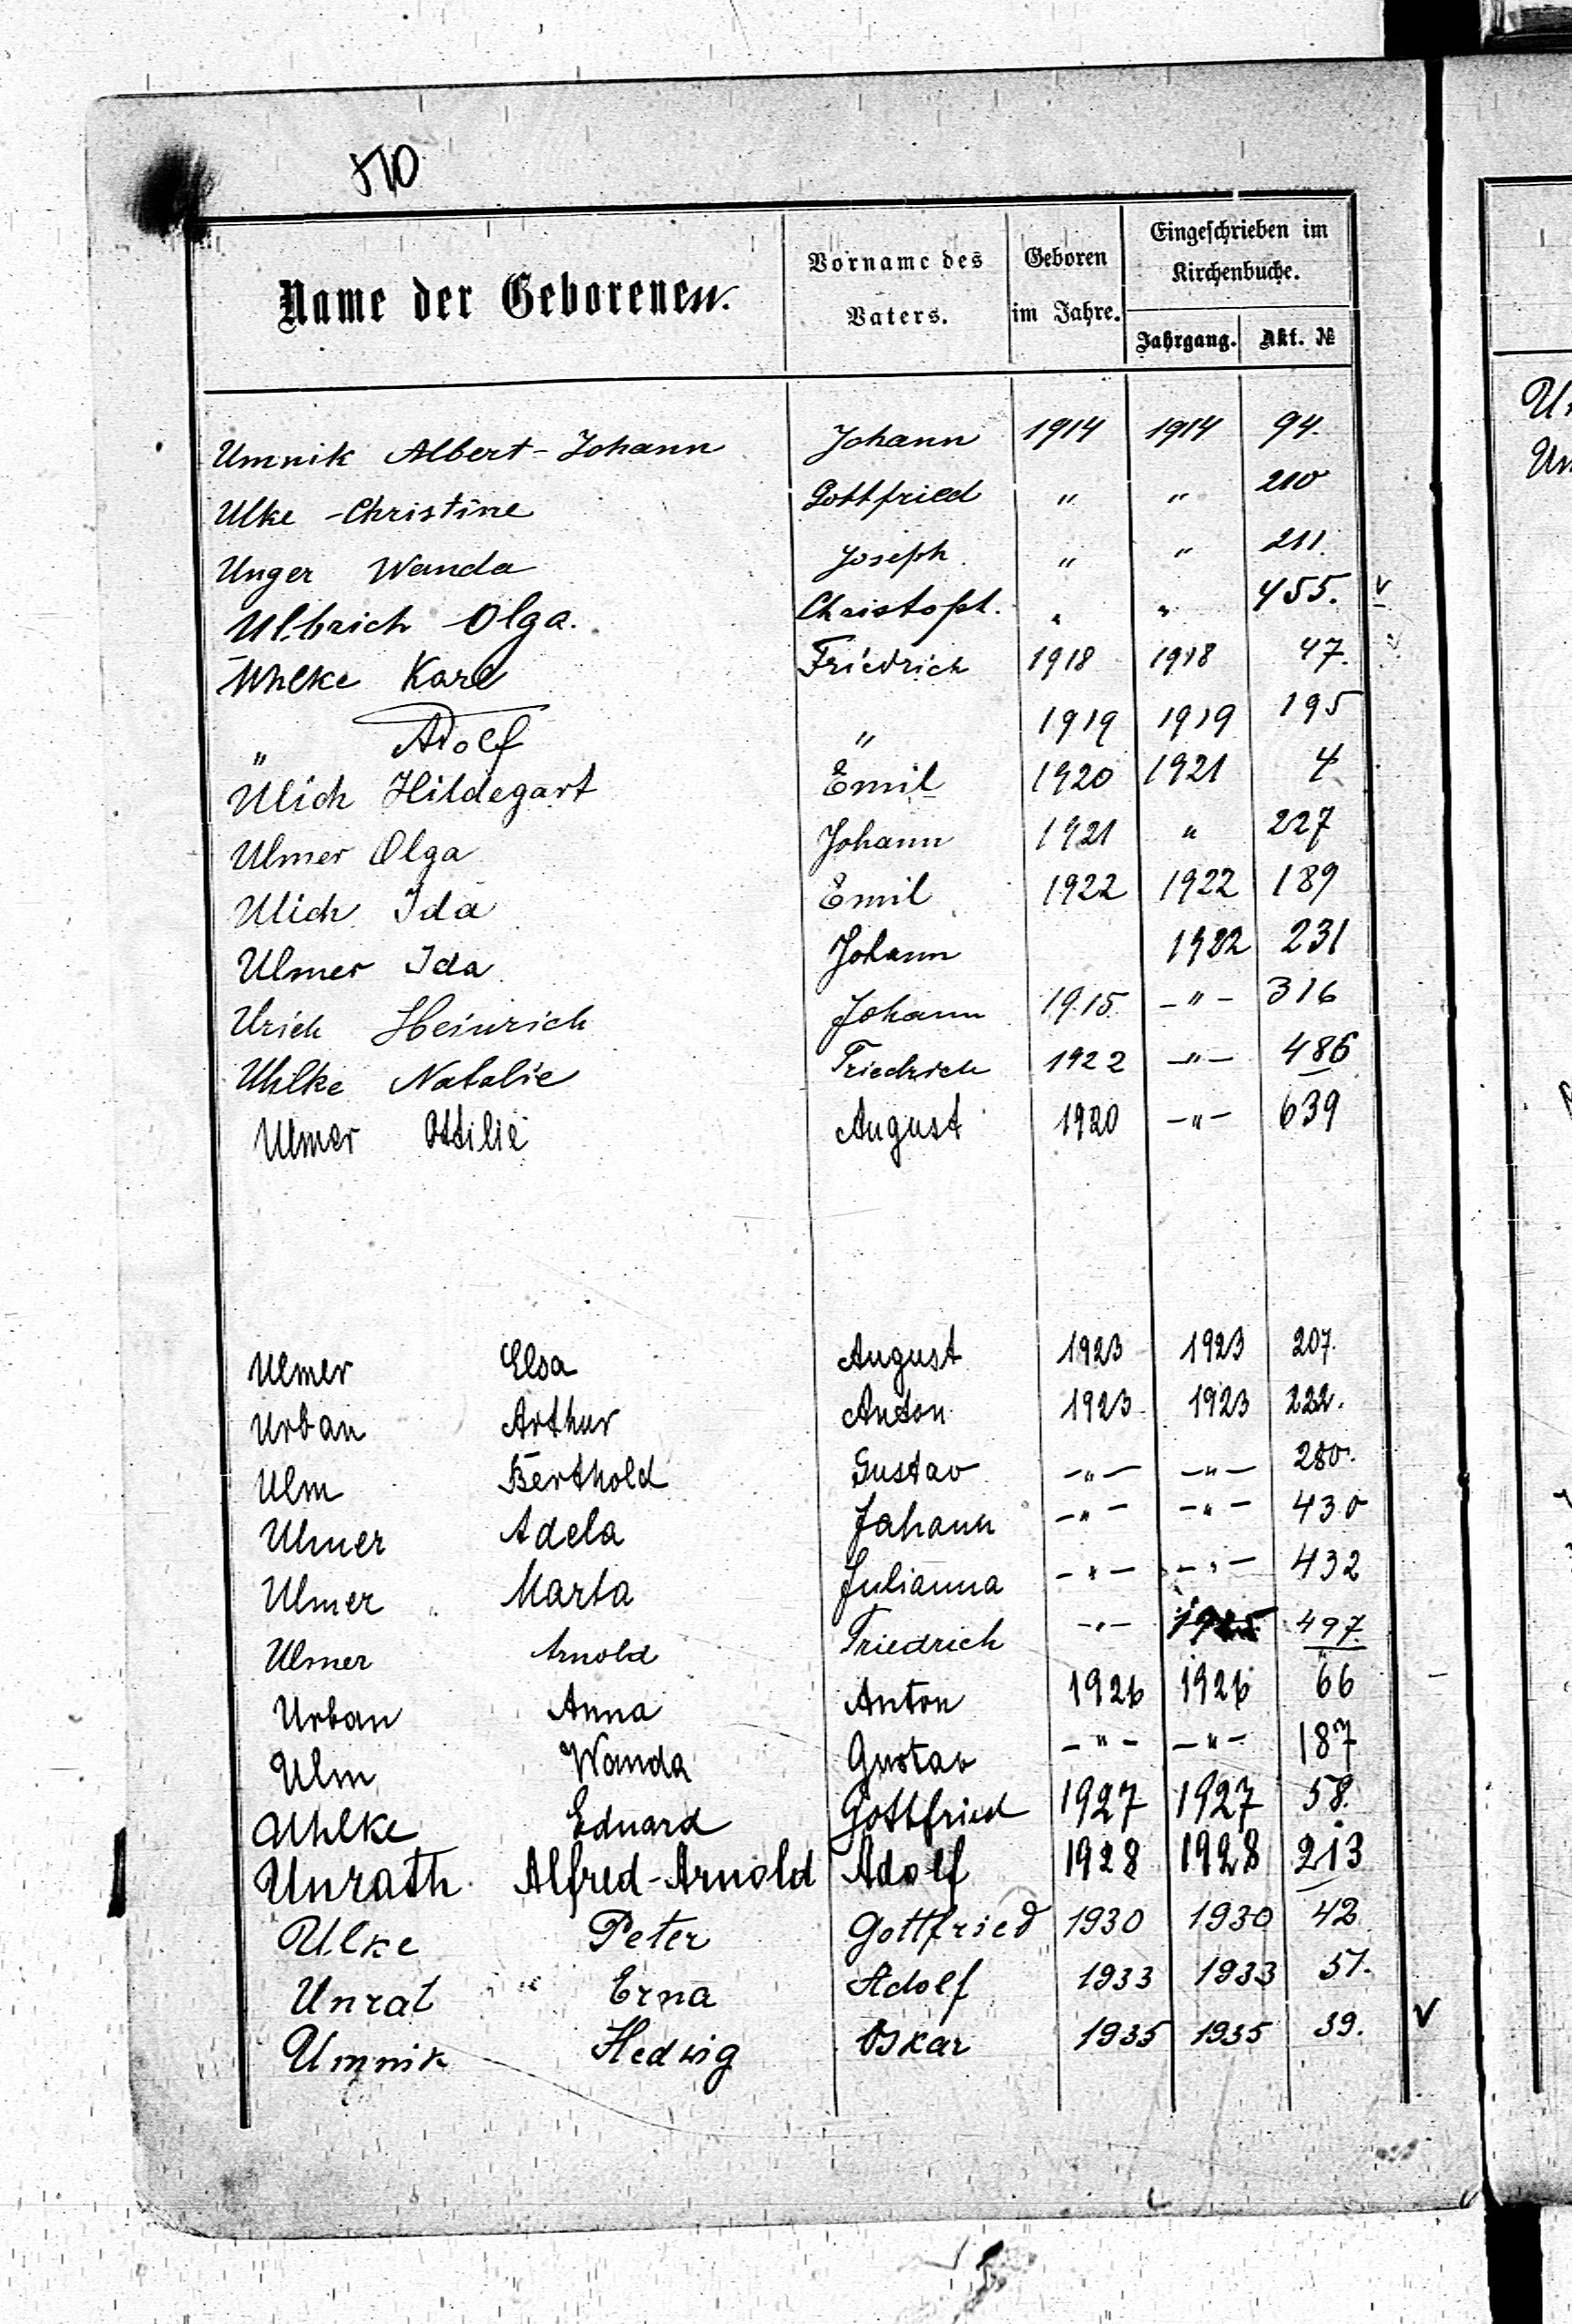 570
Name der Geborenen. Vorname des Vaters. Geboren im Jahre. Eingeschrieben im Kirchenbuche.
Jahrgang. Akt. №
Umnik Albert-Johann Johann 1914 1914 94.
Ulke -Christine Gottfried " " 210
Unger Wanda Joseph. " " 211.
Ulbrich Olga. Christoph. " " 455. v
Uhlke Karl Friedrich 1918 1918 47.
" Adolf " 1919 1919 195
Ulich Hildegart Emil 1920 1921 4
Ulmer Olga Johann 1921 " 227
Ulich Ida Emil 1922 1922 189
Ulmer Ida Johann 1922 231
Urich Heinrich Johann 1915 -"- 316
Uhlke Natalie Friedrich 1922 -"- 486
Ulmer Ottilie August 1920 -"- 639
Ulmer Elsa August 1923 1923 207.
Urban Arthur Anton 1923 1923 222.
Ulm Berthold Gustav -"- -"- 280.
Ulmer Adela Johann -"- -"- 430
Ulmer Marta Julianna -"- -"- 432
Ulmer Arnold Friedrich -"- 497.
Urban Anna Anton 1926 1926 66
Ulm Wanda Gustav -"- -"- 187
Uhlke Eduard Gottfried 1927 1927 58.
Unrath Alfred-Arnold Adolf 1928 1928 213
Ulke Peter Gottfried 1930 1930 42
Unrat Erna Adolf 1933 1933 51.
Umnik Hedwig Oskar 1935 1935 39. v